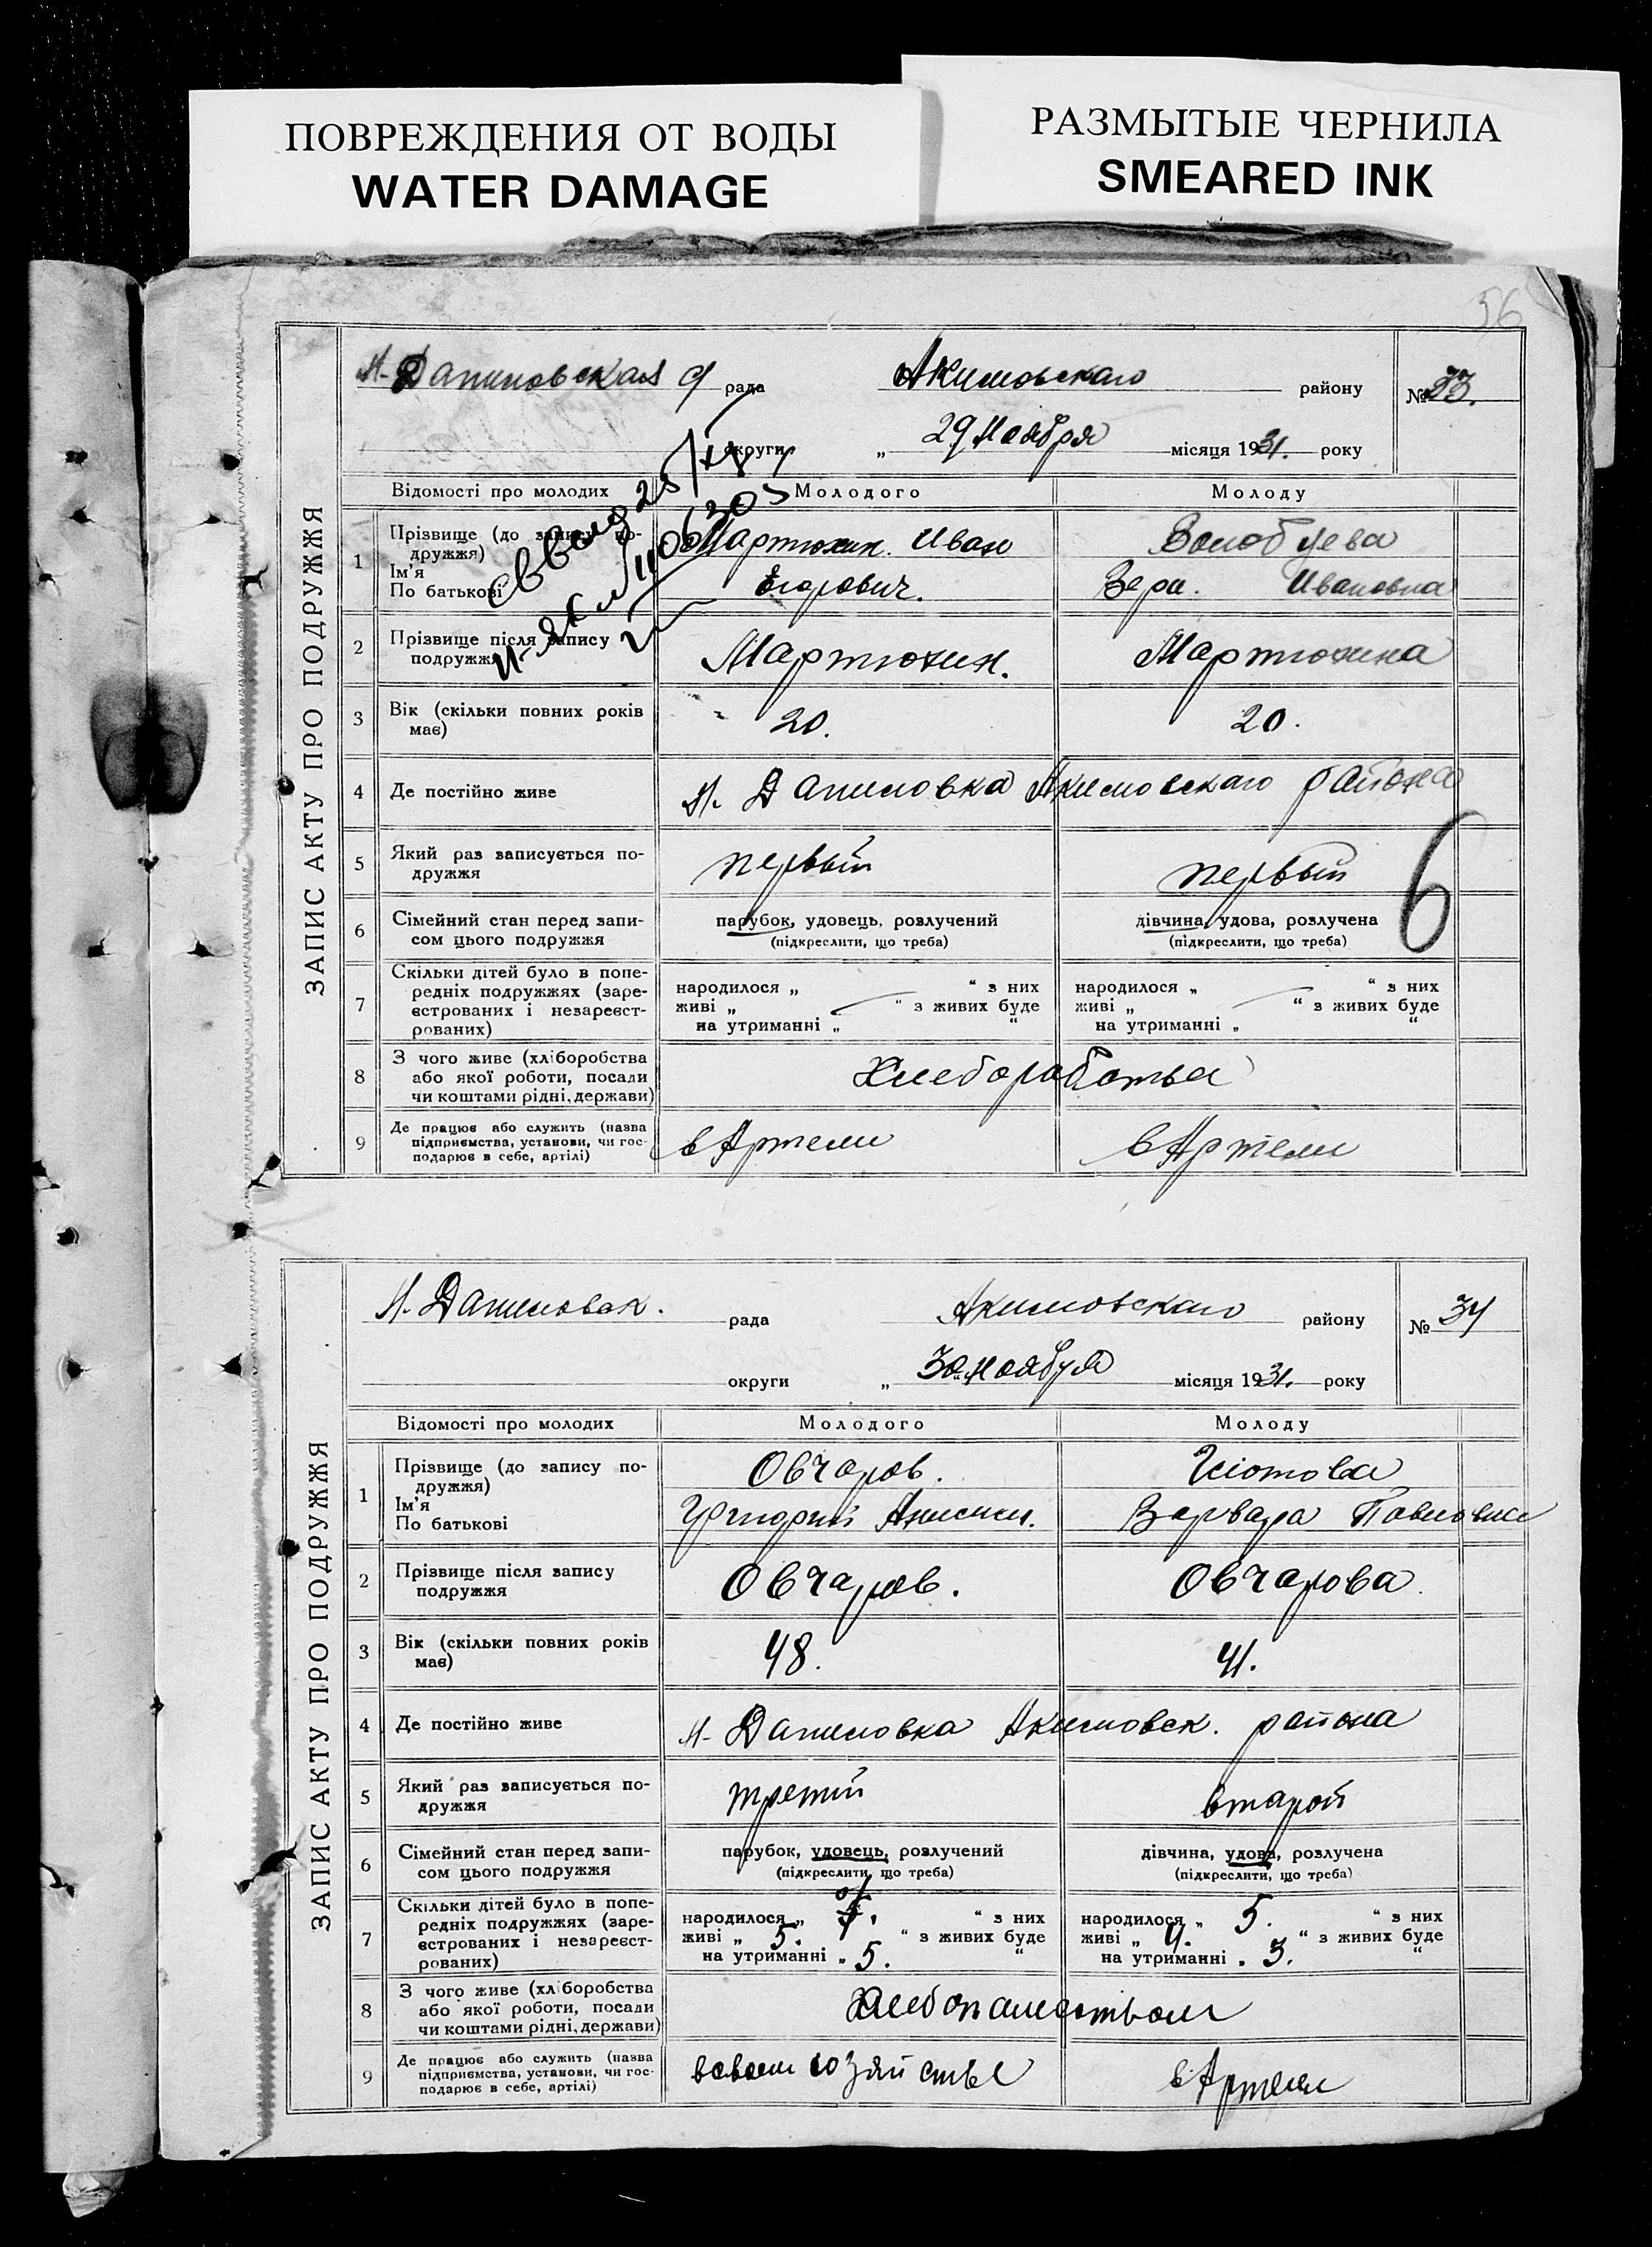 ПОВРЕЖДЕНИЯ ОТ ВОДЫ
WATER DAMAGE
РАЗМЫТЫЕ ЧЕРНИЛА
SMEARED INK
56
ЗАПИС АКТУ ПРО ПОДРУЖЖЯ
М. Даниловская с/ рада Акимовскаго району № 33.
округи „ 29 Ноября місяця 1931. року
Відомості про молодих Молодого Молоду
1 Прізвище (до запису по- Мартюхин. Иван
дружжя)
Ім’я Егорович. Вера. Ивановна
По батькові
2 Прізвище після запису Мартюхин. Мартюхина
подружжя
3 Вік (скільки повних років 20. 20.
має)
4 Де постійно живе М. Даниловка Акимовскаго района
5 Який раз записується по- первый первый
дружжя
6 Сімейний стан перед запи- парубок, удовець, розлучений дівчина, удова, розлучена
сом цього подружжя (підкреслити, що треба) (підкреслити, що треба)
6
7 Скільки дітей було в попе-
редніх подружжях (заре- народилося „ “ з них народилося „ “ з них
єстрованих і незареєст- живі „ “ з живих буде живі „ “ з живих буде
рованих) на утриманні „ “ на утриманні „ “
8 З чого живе (хліборобства
або якої роботи, посади Хлеборобства
чи коштами рідні, держави)
9 Де працює або служить (назва в Артели в Артели
підприємства, установи, чи гос-
подарює в себе, артілі)
ЗАПИС АКТУ ПРО ПОДРУЖЖЯ
М. Даниловск. рада Акимовскаго району № 34
округи „ 30 Ноября місяця 1931. року
Відомості про молодих Молодого Молоду
1 Прізвище (до запису по- Овчаров.
дружжя)
Ім’я Григорий Анисим. Варвара Павловна
По батькові
2 Прізвище після запису Овчаров. Овчарова
подружжя
3 Вік (скільки повних років 48. 41.
має)
4 Де постійно живе М. Даниловка Акимовск. района
5 Який раз записується по- третий второй
дружжя
6 Сімейний стан перед запи- парубок, удовець, розлучений дівчина, удова, розлучена
сом цього подружжя (підкреслити, що треба) (підкреслити, що треба)
7 Скільки дітей було в попе-
редніх подружжях (заре- народилося „ “ з них народилося „ 5. “ з них
єстрованих і незареєст- живі „ 5. “ з живих буде живі „ 4. “ з живих буде
рованих) на утриманні „ 5. “ на утриманні „ 3. “
8 З чого живе (хліборобства
або якої роботи, посади Хлебопашеством
чи коштами рідні, держави)
9 Де працює або служить (назва в своем хозяйстве в Артели
підприємства, установи, чи гос-
подарює в себе, артілі)